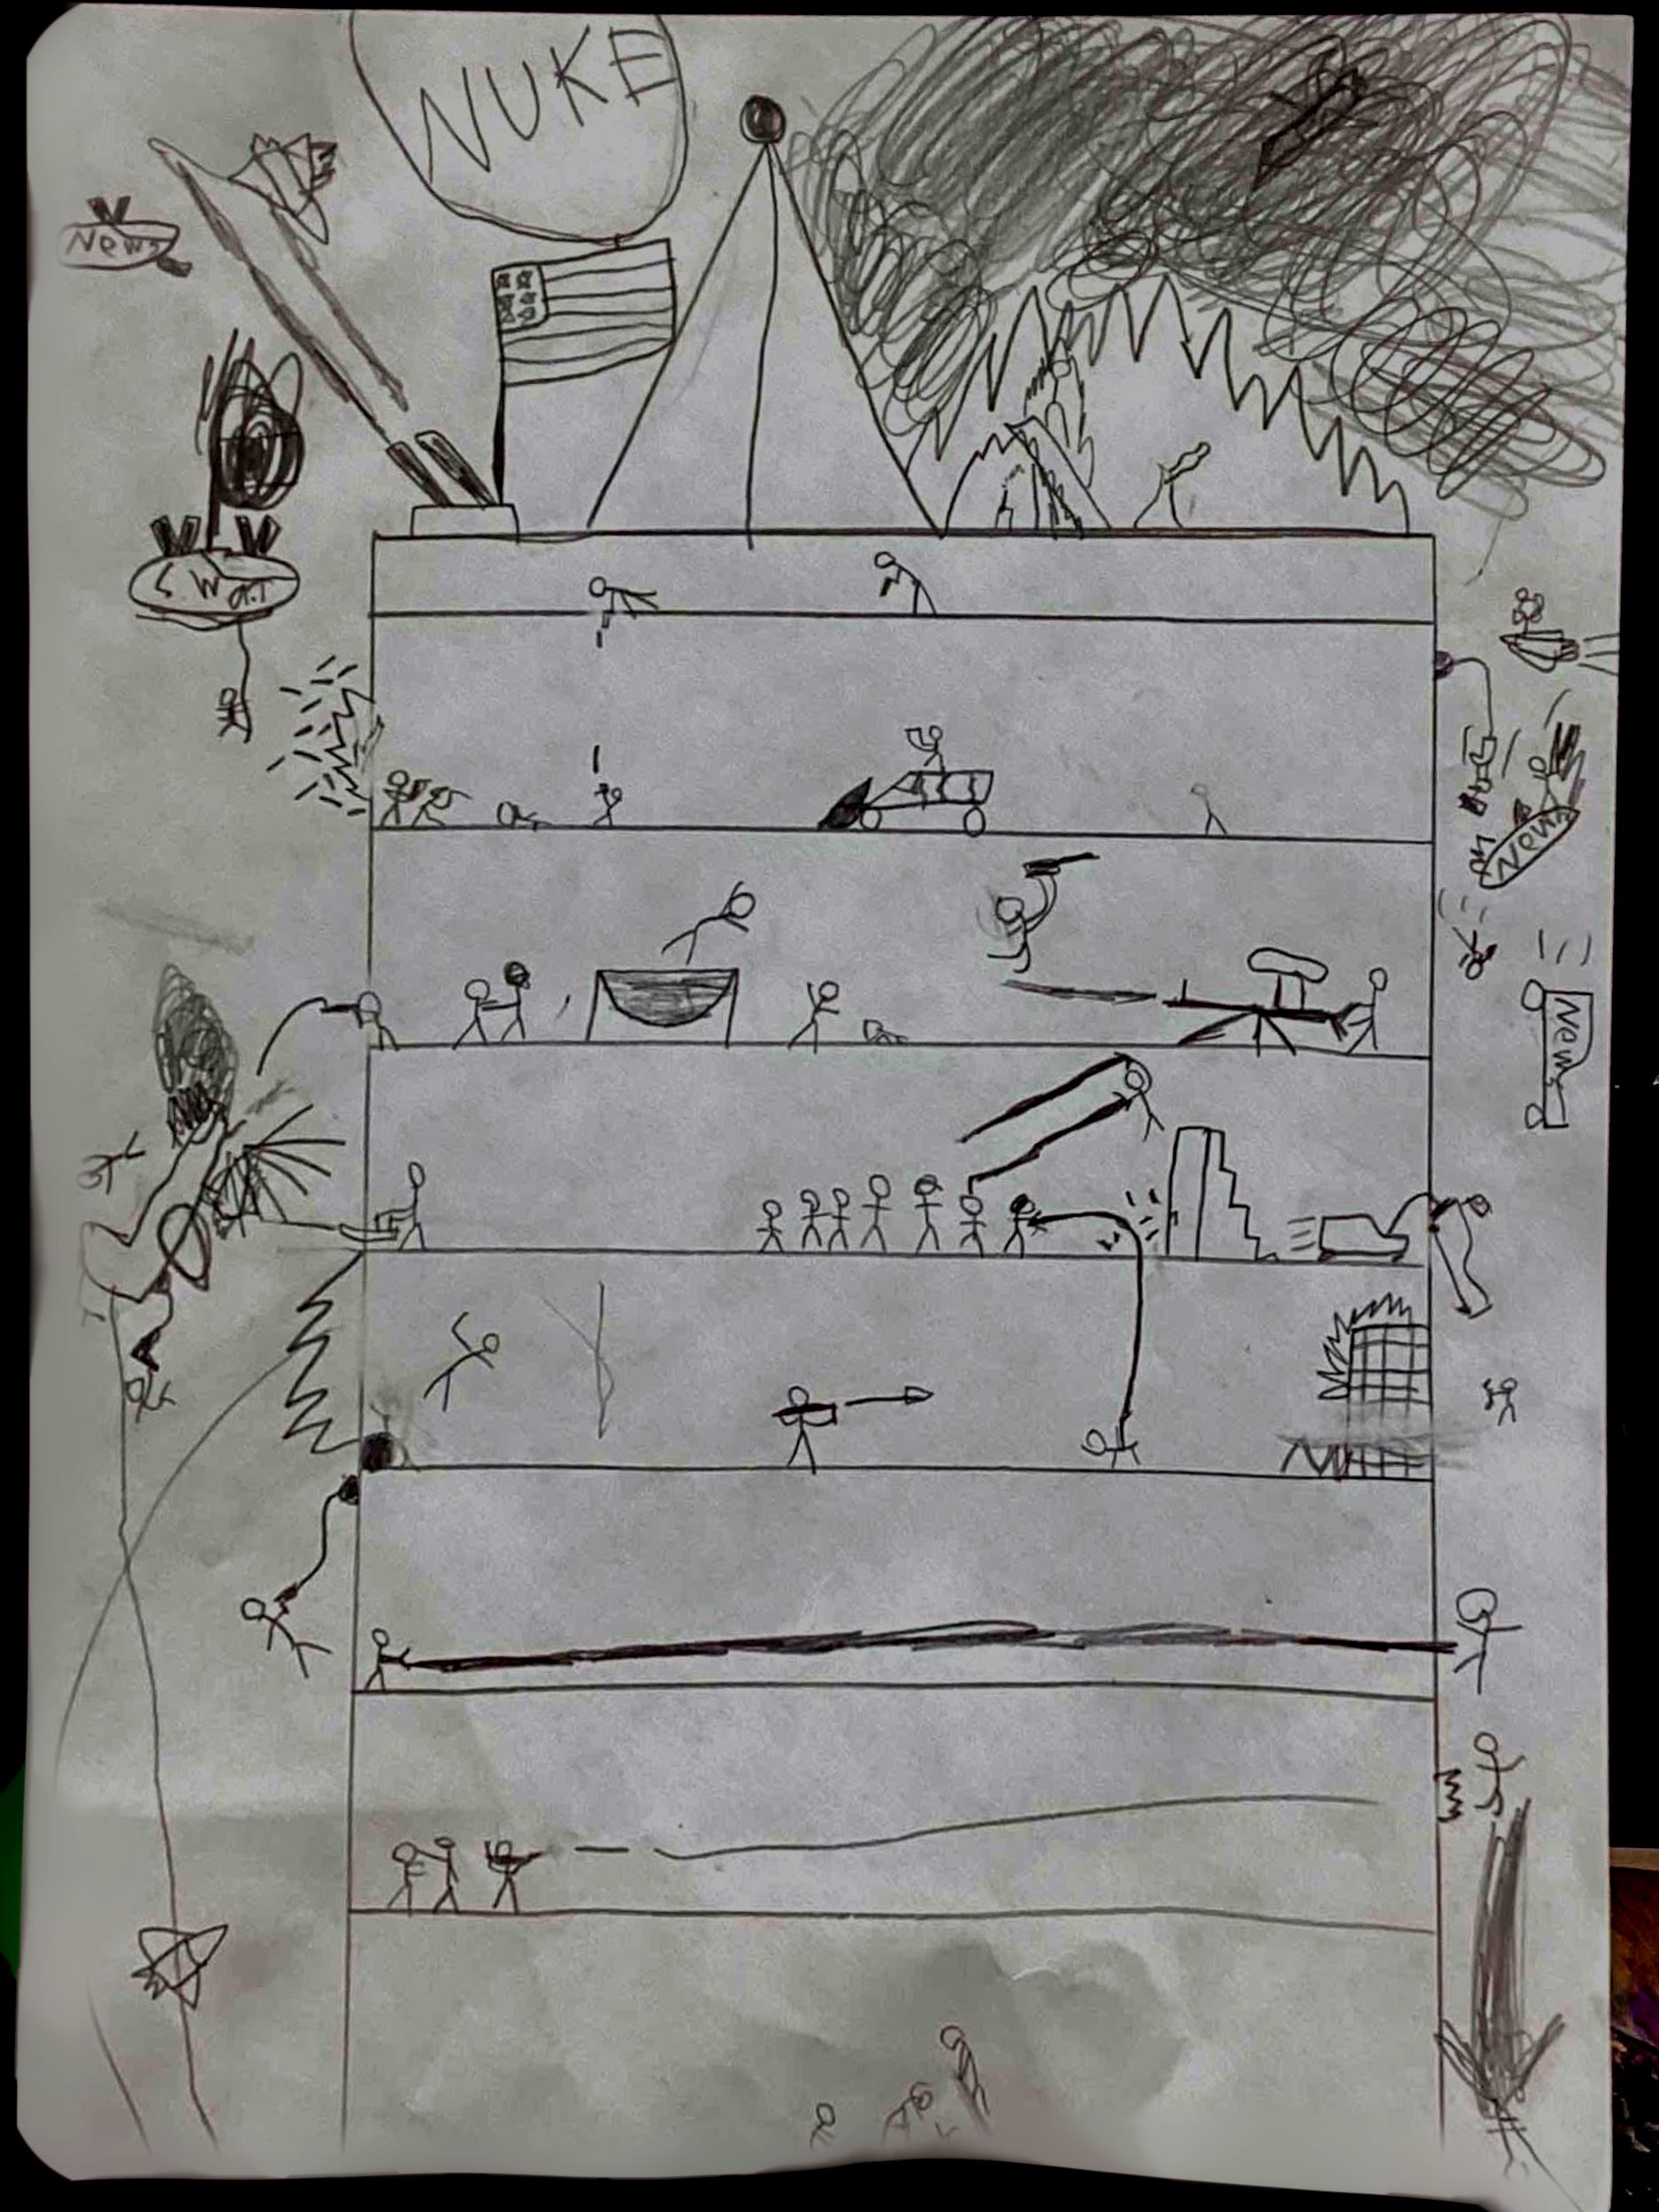 NUKE
News
S.W.a.T
News
News